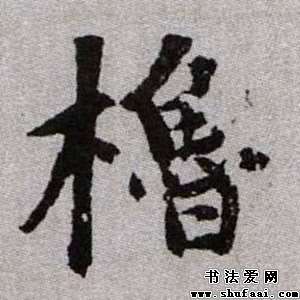 櫓
书法爱网
www.shufaai.com